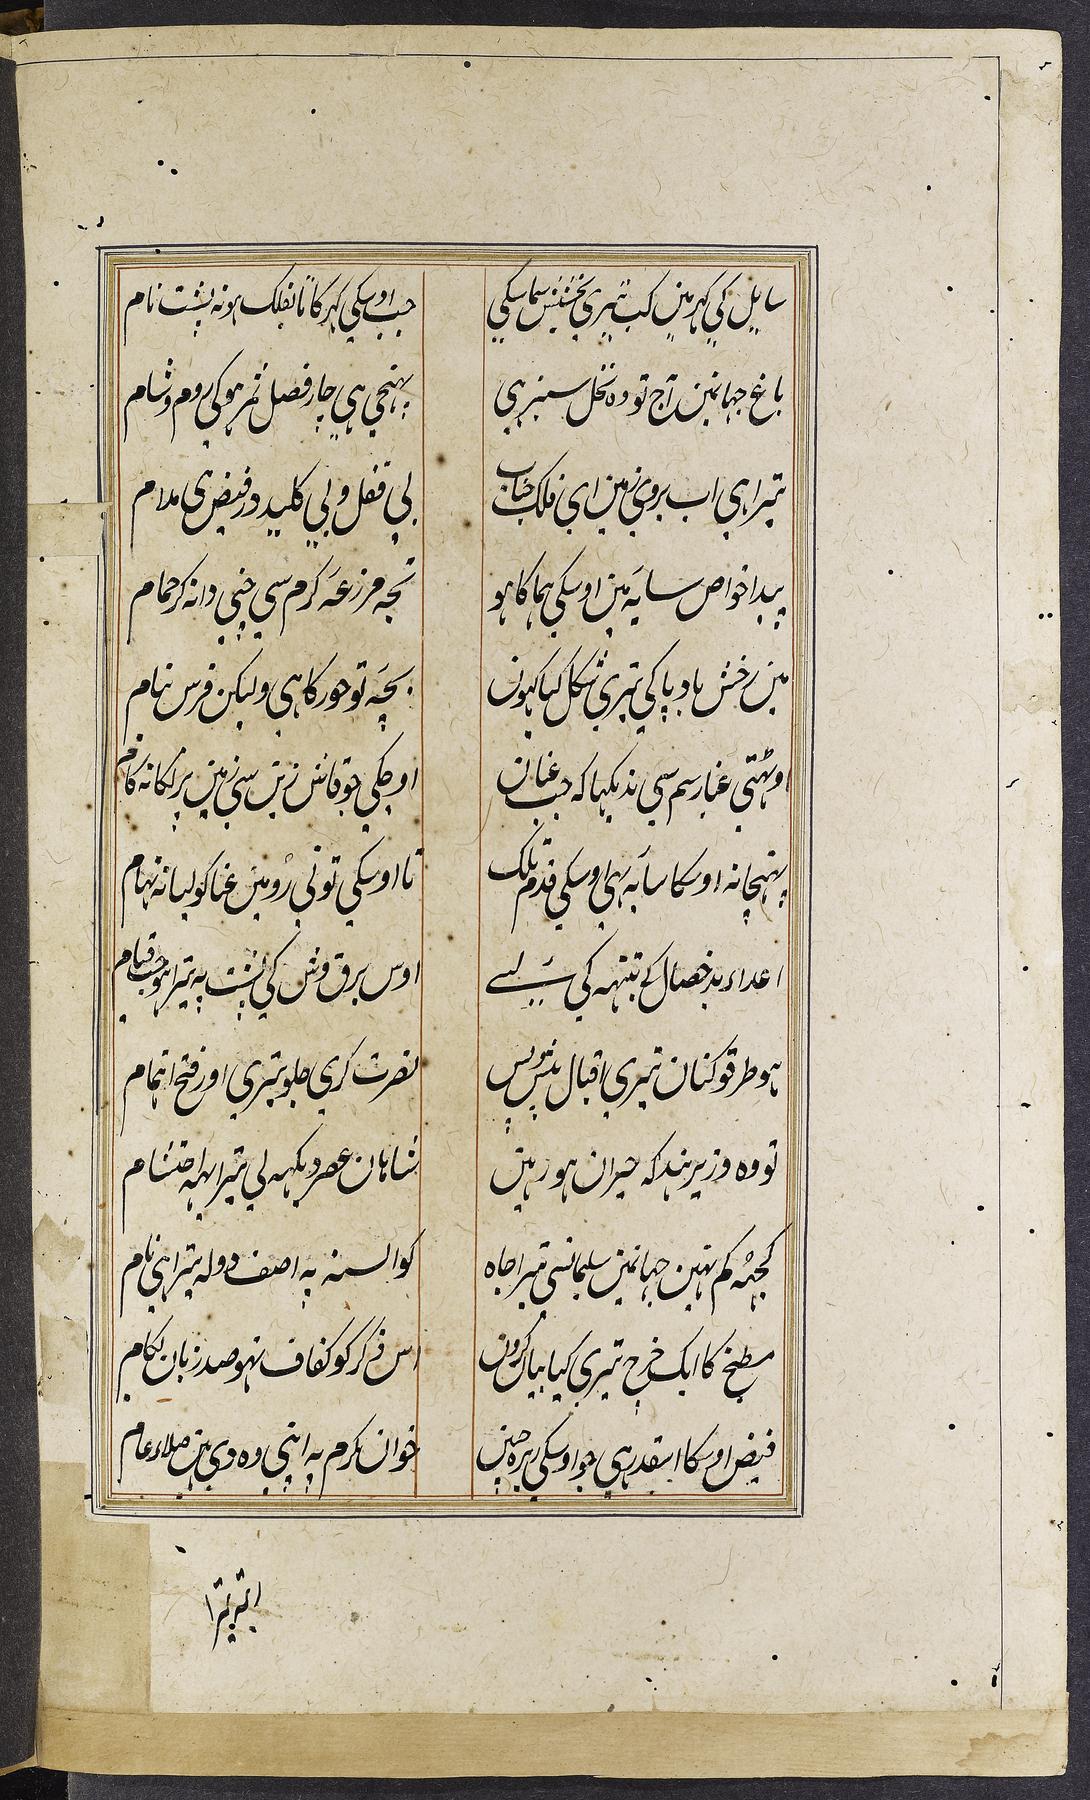 سایل کی کہر مین کب تیری بخشش سما سکی
جب اوسکی کہر کا تا بفلک ہونہ پشت نام
باغ جہانمین آج تو وہ نخل سبز ہی
پہنچی ہی چار فصل ثمر ہو کی روم و شام
تیرا ہی اب بروی زمین ای فلک جناب
بی قفل و بی کلید در فیض ہی مدام
پیدا خواص سایہ مین اوسکی ہما کا ہو
تجہ مزرعہ کرم سی چنی دانہ کر حمام
مین رخش باد پا کی تیری شکل کیا کہون
بچہ تو حور کا ہی ولیکن فرس بنام
اوٹہتی غبار سم سی ندیکہا کہ جب عنان
اوچکی جو قاش زین سی زمین پر لکا نہ کام
پہنچا نہ اوسکا سایہ بہی اوسکی قدم تلک
تا اوسکی تونی رو مین عنا کو لیا نہ تہام
اعداء بد خصال کی تنبیہ کی لیے
اوس برق وش کی پشت پہ تیرا ہو جب قیام
ہو طرقو کنان تیری اقبال پیش و پس
نصرت کری جلو تیری اور فتح اہتمام
تو وہ وزیر ہند کہ حیران ہو رہین
شاہان عصر دیکہہ لی تیرا یہہ احتشام
کچہہ کم نہین جہانمین سلیمانسی تیرا جاہ
کو السنہ پہ اصف دولہ تیرا ہی نام
مطبخ کا ایک خرچ تیری کیا بیان کرون
اس ذکر کو کفاف نہو صد زبان بکام
فیض اوسکا اسقدر ہی جو اوسکی رہرہ چین
خوان کرم پہ اپنی وہ دی ہین صلاء عام